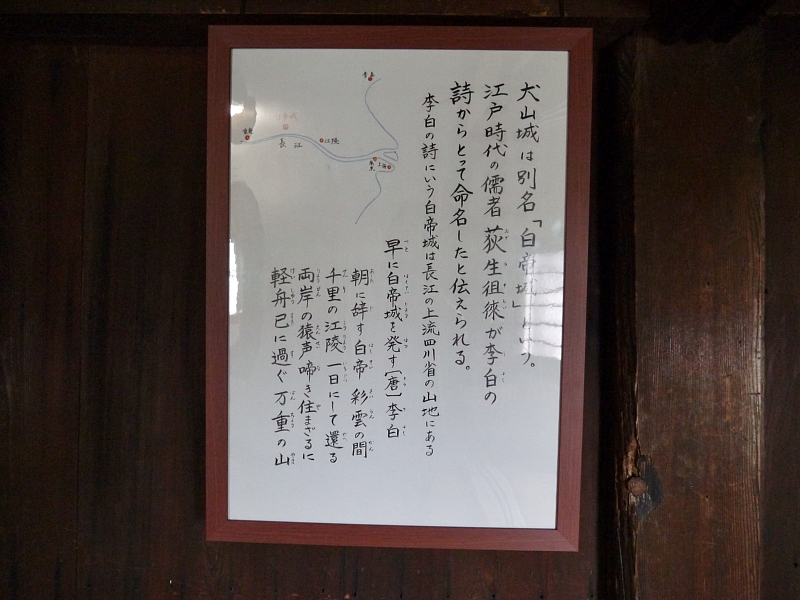 犬山城は別名「白帝城」という。
江戸時代の儒者 荻生徂徠が李白の
詩からとって命名したと伝えられる。
李白の詩にいう白帝城は長江の上流四川省の山地にある
早に白帝城を発す［唐］李白
朝に辞す白帝 彩雲の間
千里の江陵 一日にして還る
両岸の猿声啼き住まざるに
軽舟已に過ぐ 万重の山
長江
江陵
上海